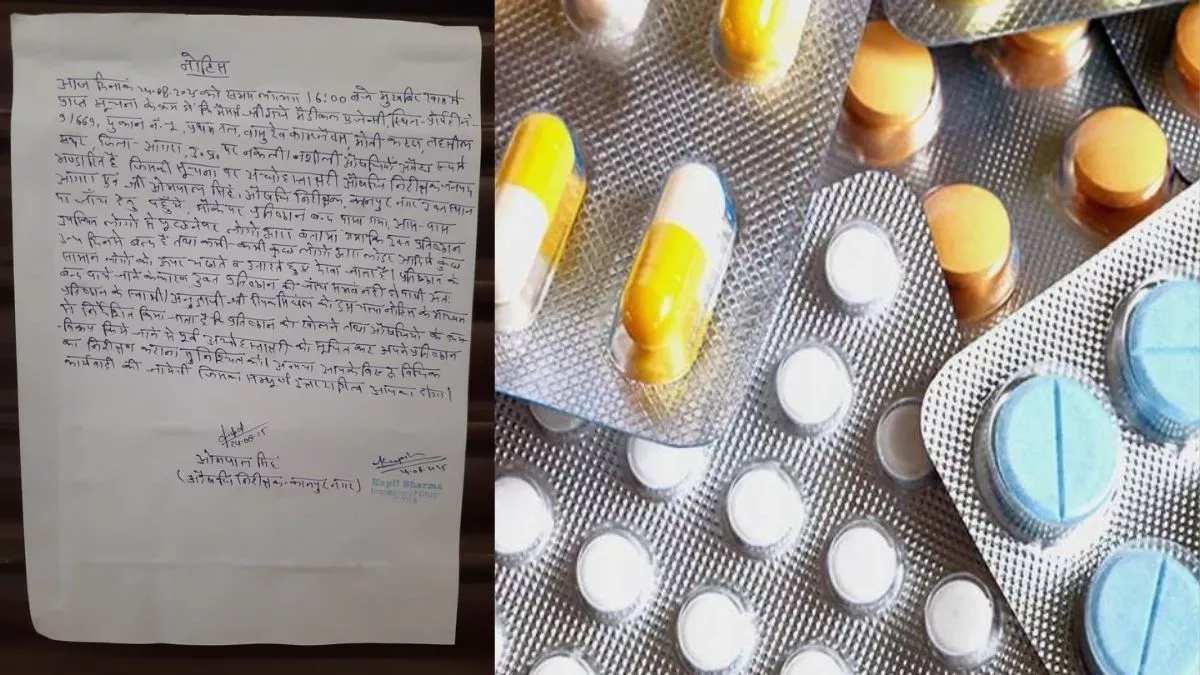 नोटिस
आज दिनांक 24.08.2025 को समय लगभग 16:00 बजे मुखबिर खास से
प्राप्त सूचना के क्रम में कि मैसर्स श्री राधे मैडीकल एजेन्सी, स्थित-
9/669, दुकान नं.-2, प्रथम तल, वासुदेव काम्प्लैक्स, मोती कटरा, तहसील
सदर, जिला- आगरा, उ.प्र. पर नकली/नशीली औषधियां अवैध रूप से
भण्डारित हैं जिसकी सूचना पर अधोहस्ताक्षरी औषधि निरीक्षक जनपद
आगरा एवं श्री ओमपाल सिंह, औषधि निरीक्षक, कानपुर नगर उक्त स्थान
पर जाँच हेतु पहुंचे, मौके पर प्रतिष्ठान बन्द पाया गया, आस-पास
उपस्थित लोगों से पूछने पर लोगों द्वारा बताया गया कि उक्त प्रतिष्ठान
दिनों से बन्द है तथा कभी-कभी कुछ लोगों द्वारा आदि से कुछ
सामान लोगों को ऊपर चढ़ाते व उतारते हुए देखा जाता है। प्रतिष्ठान के
बन्द पाये जाने के कारण उक्त प्रतिष्ठान की जाँच संभव नहीं हो पायी अतः
प्रतिष्ठान के स्वामी/अनुज्ञापी श्री को इस नोटिस के माध्यम
से निर्देशित किया जाता है कि प्रतिष्ठान को खोलने तथा औषधियों के क्रय-
विक्रय किये जाने से पूर्व अधोहस्ताक्षरी को सूचित कर अपने प्रतिष्ठान
का निरीक्षण कराना सुनिश्चित करें। अन्यथा आपके विरुद्ध विधिक
कार्यवाही की जायेगी जिसका सम्पूर्ण उत्तरदायित्व आपका होगा।
24.08.25
ओमपाल सिंह
(औषधि निरीक्षक- कानपुर नगर)
Kapil Sharma